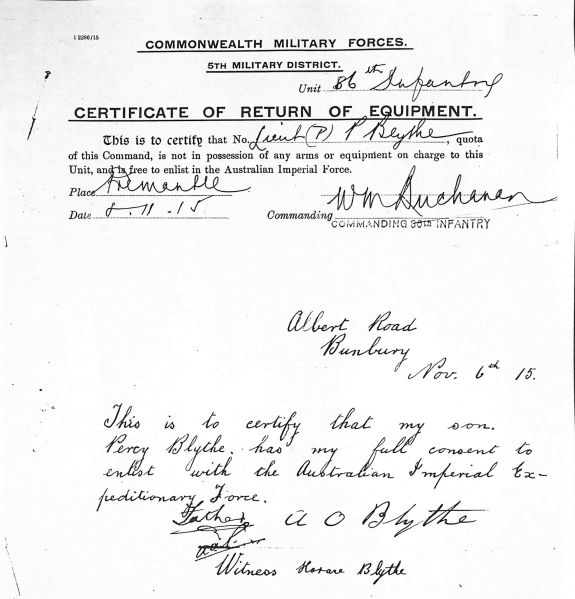 I 2296/15
COMMONWEALTH MILITARY FORCES.
5TH MILITARY DISTRICT.
Unit 86th Infantry
CERTIFICATE OF RETURN OF EQUIPMENT.
This is to certify that No. Lieut (P) P Blythe, quota
of this Command, is not in possession of any arms or equipment on charge to this
Unit, and is free to enlist in the Australian Imperial Force.
Place Fremantle
Date 8.11.15
WM Buchanan
Commanding
COMMANDING 86TH INFANTRY
Albert Road
Bunbury
Nov. 6th 15.
This is to certify that my son.
Percy Blythe, has my full consent to
enlist with the Australian Imperial Ex-
peditionary Force.
Father A O Blythe
Witness Horace Blythe